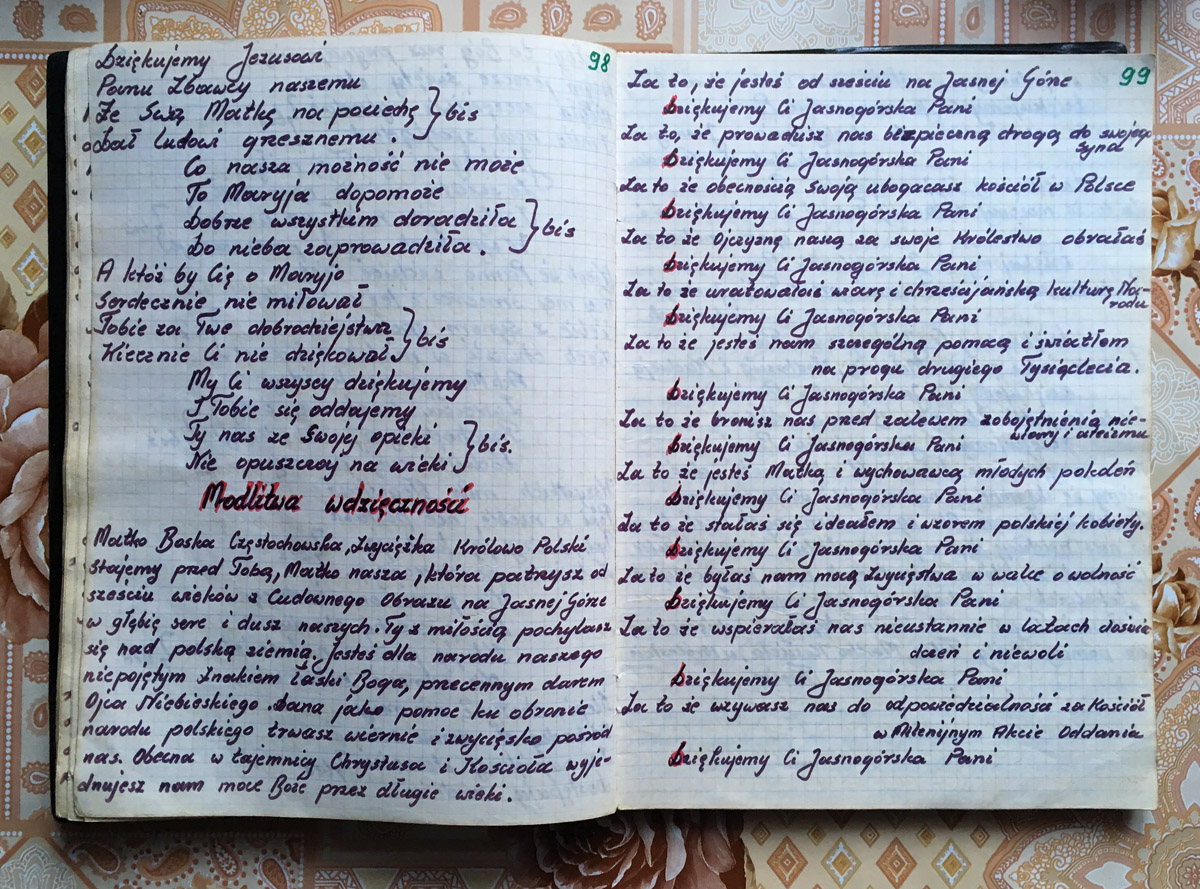 98
Dziękujemy Jezusowi
Panu Zbawcy naszemu
Że Swą Matkę na pociechę } bis
Dał ludowi grzesznemu.
Co nasza możność nie może
To Maryja dopomoże
Dobrze wszystkim doradziła } bis
Do nieba zaprowadziła.
A któż by Cię o Maryjo
Serdecznie nie miłował
Tobie za Twe dobrodziejstwa } bis
Wiecznie Ci nie dziękował
My Ci wszyscy dziękujemy
I Tobie się oddajemy
Ty nas ze Swojej opieki } bis.
Nie opuszczaj na wieki
Modlitwa wdzięczność
Matko Boska Częstochowska, Zwyciężka Królowo Polski
Stajemy przed Tobą, Matko nasza, która patrzysz od
sześciu wieków z Cudownego Obrazu na Jasnej Górze
w głębię serc i dusz naszych. Ty z miłością pochylasz
się nad polską ziemią. Jesteś dla narodu naszego
niepojętym znakiem łaski Boga, przecennym darem
Ojca Niebieskiego. Dana jako pomoc ku obronie
narodu polskiego trwasz wiernie i zwycięsko pośród
nas. Obecna w tajemnicy Chrystusa i Kościoła wyje-
dnujesz nam moce Boże przez długie wieki.
99
Za to, że jesteś od sześciu na Jasnej Górze
Dziękujemy Ci Jasnogórska Pani
Za to, że prowadzisz nas bezpieczną drogą do swojego
Syna
Dziękujemy Ci Jasnogórska Pani
Za to że obecnością Swoją ubogacasz kościół w Polsce
Dziękujemy Ci Jasnogórska Pani
Za to że Ojczyznę naszą za swoje Królestwo obrałaś
Dziękujemy Ci Jasnogórska Pani
Za to że uratowałaś wiarę i chrześcijańską kulturę Na-
rodu
Dziękujemy Ci Jasnogórska Pani
Za to że jesteś nam szczególną pomocą i światłem
na progu drugiego Tysiąclecia.
Dziękujemy Ci Jasnogórska Pani
Za to że bronisz nas przed zalewem zobojętnienia nie-
wiary i ateizmu
Dziękujemy Ci Jasnogórska Pani
Za to że jesteś Matką i wychowawcą młodych pokoleń
Dziękujemy Ci Jasnogórska Pani
Za to że stałaś się ideałem i wzorem polskiej kobiety.
Dziękujemy Ci Jasnogórska Pani
Za to że byłaś nam mocą Zwycięstwa w walce o wolność
Dziękujemy Ci Jasnogórska Pani
Za to że wspierałaś nas nieustannie w latach doświa-
dzeń i niewoli
Dziękujemy Ci Jasnogórska Pani
Za to że wzywasz nas do odpowiedzialność za Kościół
w Milenijnym Akcie Oddania
Dziękujemy Ci Jasnogórska Pani